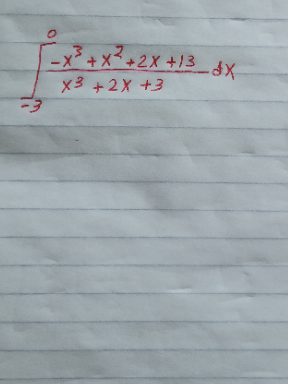 ∫₋₃⁰ (-x³ + x² + 2x + 13)/(x³ + 2x + 3) dx